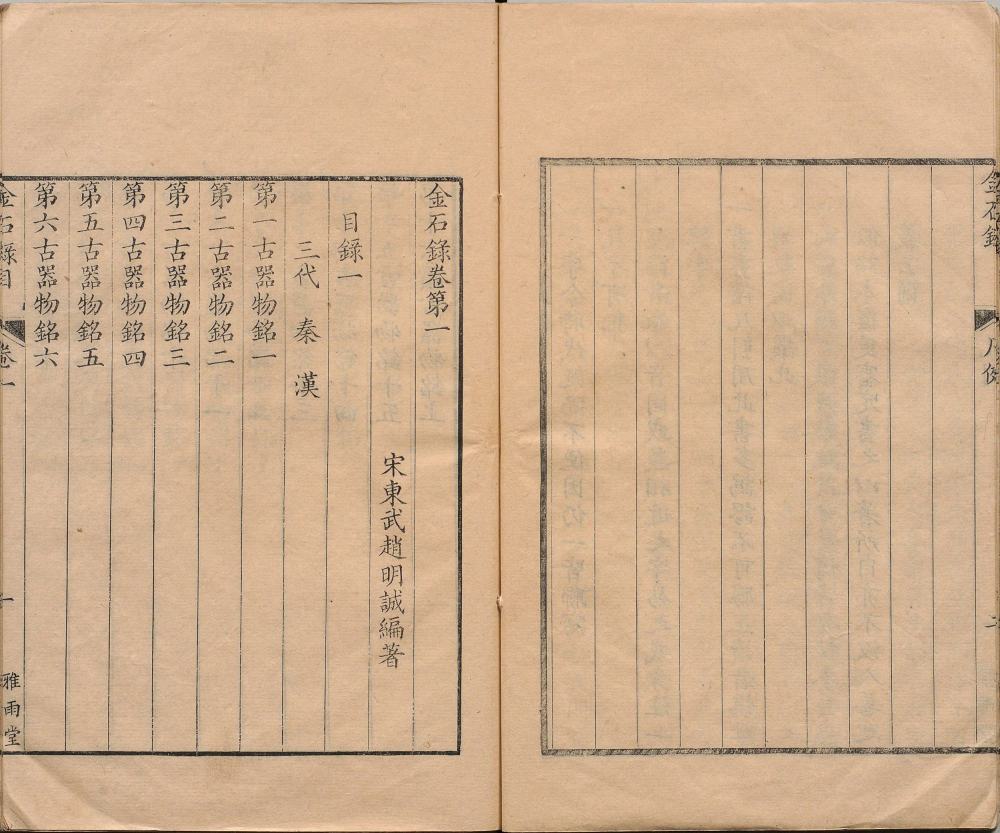 金石錄
金石錄卷第一
宋東武趙明誠編著
目錄一
三代 秦 漢
第一古器物銘一
第二古器物銘二
第三古器物銘三
第四古器物銘四
第五古器物銘五
第六古器物銘六
金石錄目 卷一 一 雅雨堂